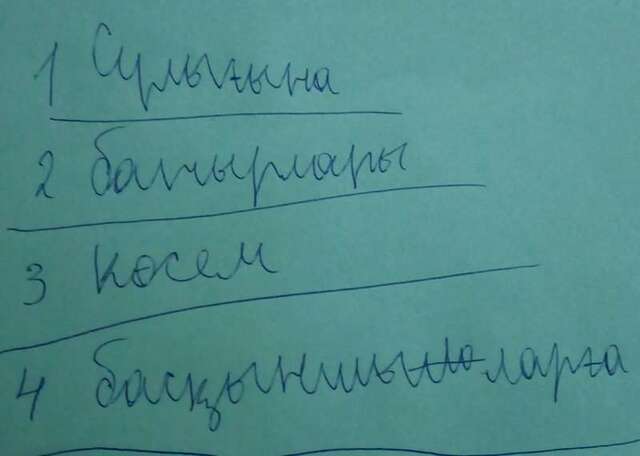 1 Сұлығына
2 батырлары
3 көсем
4 басқыншыларға